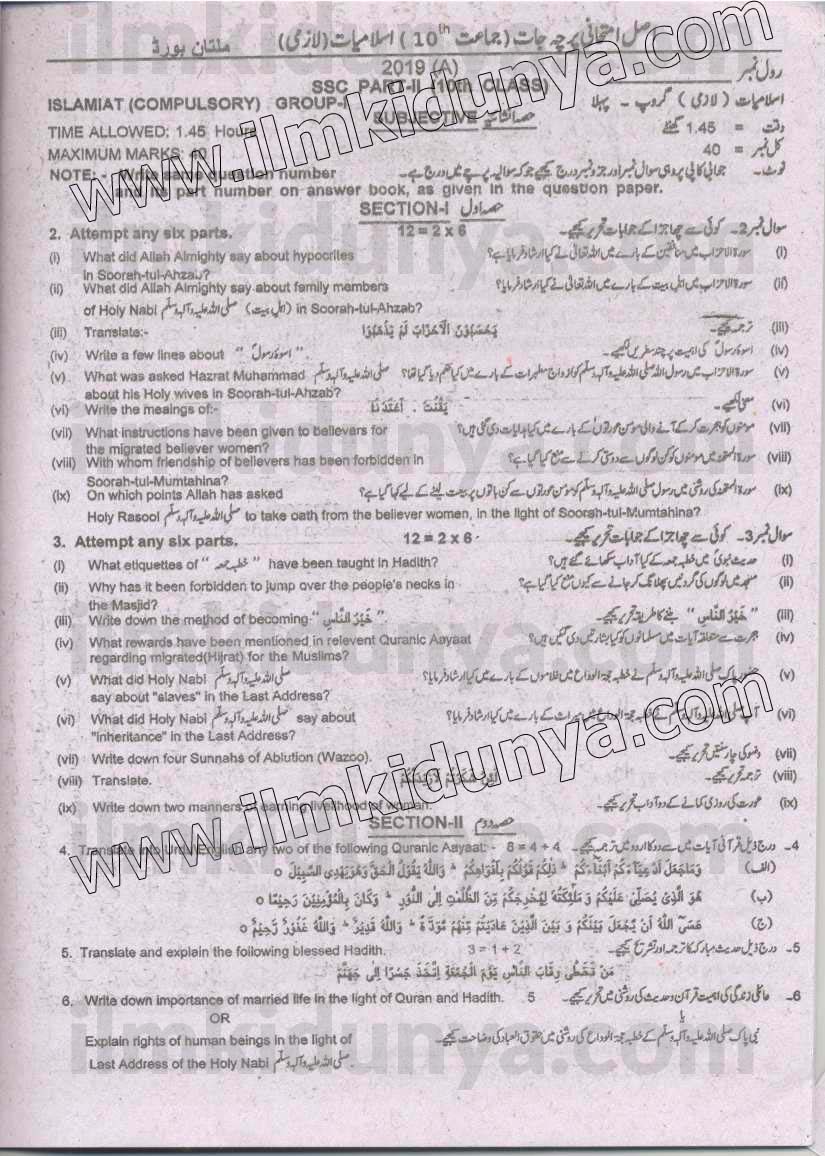 اصل امتحانی پرچہ جات (جماعت 10th) اسلامیات (لازمی) ملتان بورڈ
2019 (A) رول نمبر
SSC PART-II (10th CLASS)
ISLAMIAT (COMPULSORY) GROUP-I اسلامیات (لازمی) گروپ - پہلا
SUBJECTIVE حصہ انشائیہ
TIME ALLOWED: 1.45 Hours وقت = 1.45 گھنٹے
MAXIMUM MARKS: 40 کل نمبر = 40
NOTE: - Write same question number جوابی کاپی پر وہی سوال نمبر اور جزو نمبر درج کیجیے جو کہ سوالیہ پرچے میں درج ہے۔ نوٹ۔
and its part number on answer book, as given in the question paper.
SECTION-I حصہ اول
2. Attempt any six parts. 12 = 2 x 6 سوال نمبر 2- کوئی سے چھ اجزا کے جوابات تحریر کیجیے۔
(i) What did Allah Almighty say about hypocrites سورۃ الاحزاب میں منافقین کے بارے میں اللہ تعالیٰ نے کیا ارشاد فرمایا ہے؟ (i)
in Soorah-tul-Ahzab?
(ii) What did Allah Almighty say about family members سورۃ الاحزاب میں اہلِ بیت کے بارے میں اللہ تعالیٰ نے کیا ارشاد فرمایا؟ (ii)
of Holy Nabi صلی اللہ علیہ وآلہ وسلم (اہلِ بیت) in Soorah-tul-Ahzab?
(iii) Translate:- يَحْسَبُوْنَ الْاَحْزَابَ لَمْ يَذْهَبُوْا ترجمہ کیجیے۔ (iii)
(iv) Write a few lines about “اسوۂ رسولؐ”. اسوۂ رسولؐ کی اہمیت پر چند سطریں لکھیے۔ (iv)
(v) What was asked Hazrat Muhammad صلی اللہ علیہ وآلہ وسلم سورۃ الاحزاب میں رسول اللہ صلی اللہ علیہ وآلہ وسلم کو ازواجِ مطہرات کے بارے میں کیا حکم دیا گیا تھا؟ (v)
about his Holy wives in Soorah-tul-Ahzab?
(vi) Write the meaings of:- يَقْنُتْ ، اَعْتَدْنَا معنی لکھیے۔ (vi)
(vii) What instructions have been given to believers for مومنوں کو ہجرت کر کے آنے والی مومن عورتوں کے بارے میں کیا ہدایات دی گئی ہیں؟ (vii)
the migrated believer women?
(viii) With whom friendship of believers has been forbidden in سورۃ الممتحنہ میں مومنوں کو کن لوگوں سے دوستی کرنے سے منع کیا گیا ہے؟ (viii)
Soorah-tul-Mumtahina?
(ix) On which points Allah has asked سورۃ الممتحنہ کی روشنی میں رسول صلی اللہ علیہ وآلہ وسلم کو مومن عورتوں سے کن باتوں پر بیعت لینے کے لیے کہا گیا ہے؟ (ix)
Holy Rasool صلی اللہ علیہ وآلہ وسلم to take oath from the believer women, in the light of Soorah-tul-Mumtahina?
3. Attempt any six parts. 12 = 2 x 6 سوال نمبر 3- کوئی سے چھ اجزا کے جوابات تحریر کیجیے۔
(i) What etiquettes of “خطبہ جمعہ” have been taught in Hadith? حدیثِ نبویؐ میں خطبہ جمعہ کے کیا آداب سکھائے گئے ہیں؟ (i)
(ii) Why has it been forbidden to jump over the people's necks in مسجد میں لوگوں کی گردنیں پھلانگ کر جانے سے کیوں منع کیا گیا ہے؟ (ii)
the Masjid?
(iii) Write down the method of becoming “خَيْرُ النَّاسِ”. “خَيْرُ النَّاسِ” بننے کا طریقہ تحریر کیجیے۔ (iii)
(iv) What rewards have been mentioned in relevent Quranic Aayaat ہجرت سے متعلقہ آیات میں مسلمانوں کو کیا بشارتیں دی گئیں ہیں؟ (iv)
regarding migrated(Hijrat) for the Muslims?
(v) What did Holy Nabi صلی اللہ علیہ وآلہ وسلم حضور پاک صلی اللہ علیہ وآلہ وسلم نے خطبہ حجۃ الوداع میں غلاموں کے بارے میں کیا ارشاد فرمایا؟ (v)
say about "slaves" in the Last Address?
(vi) What did Holy Nabi صلی اللہ علیہ وآلہ وسلم say about آپ صلی اللہ علیہ وآلہ وسلم نے خطبہ حجۃ الوداع میں میراث کے بارے میں کیا ارشاد فرمایا؟ (vi)
"inheritance" in the Last Address?
(vii) Write down four Sunnahs of Ablution (Wazoo). وضو کی چار سنتیں تحریر کیجیے۔ (vii)
(viii) Translate. لَئِنْ شَكَرْتُمْ لَاَزِيْدَنَّكُمْ ترجمہ تحریر کیجیے۔ (viii)
(ix) Write down two manners of earning livelihood of woman. عورت کی روزی کمانے کے دو آداب تحریر کیجیے۔ (ix)
SECTION-II حصہ دوم
4. Translate into Urdu/English any two of the following Quranic Aayaat: - 8 = 4 + 4 درج ذیل قرآنی آیات میں سے دو کا اردو میں ترجمہ کیجیے۔ 4-
(الف) وَمَا جَعَلَ اَدْعِيَآءَكُمْ اَبْنَآءَكُمْ ؕ ذٰلِكُمْ قَوْلُكُمْ بِاَفْوَاهِكُمْ ؕ وَاللّٰهُ يَقُوْلُ الْحَقَّ وَهُوَ يَهْدِى السَّبِيْلَ ○
(ب) هُوَ الَّذِىْ يُصَلِّىْ عَلَيْكُمْ وَ مَلٰٓئِكَتُهٗ لِيُخْرِجَكُمْ مِّنَ الظُّلُمٰتِ اِلَى النُّوْرِ ؕ وَكَانَ بِالْمُؤْمِنِيْنَ رَحِيْمًا ○
(ج) عَسَى اللّٰهُ اَنْ يَّجْعَلَ بَيْنَكُمْ وَ بَيْنَ الَّذِيْنَ عَادَيْتُمْ مِّنْهُمْ مَّوَدَّةً ؕ وَاللّٰهُ قَدِيْرٌ ؕ وَاللّٰهُ غَفُوْرٌ رَّحِيْمٌ ○
5. Translate and explain the following blessed Hadith. 3 = 1 + 2 درج ذیل حدیث مبارکہ کا ترجمہ اور تشریح کیجیے۔ 5-
مَنْ تَخَطّٰى رِقَابَ النَّاسِ يَوْمَ الْجُمُعَةِ اِتَّخَذَ جَسْرًا اِلٰى جَهَنَّمَ
6. Write down importance of married life in the light of Quran and Hadith. 5 عائلی زندگی کی اہمیت قرآن و حدیث کی روشنی میں تحریر کیجیے۔ 6-
OR یا
Explain rights of human beings in the light of نبی پاک صلی اللہ علیہ وآلہ وسلم کے خطبہ حجۃ الوداع کی روشنی میں حقوق العباد کی وضاحت کیجیے۔
Last Address of the Holy Nabi صلی اللہ علیہ وآلہ وسلم.
www.ilmkidunya.com
www.ilmkidunya.com